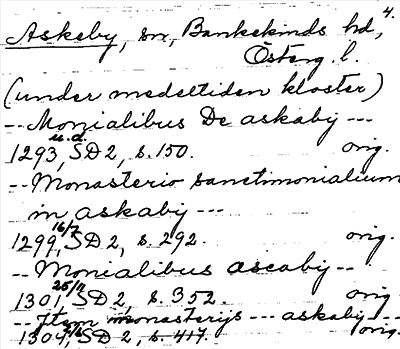 4.
Askeby, sn, Bankekinds hd,
Österg. l.
(under medeltiden kloster)
-- Monialibus De askaby ---
u.d.
1293, SD 2, s. 150. orig.
-- Monasterio sanctimonialium
in askaby ---
16/7
1299, SD 2, s. 292. orig.
-- Monialibus ascaby --
1301, SD 2, s. 352. orig
-- Item monasterijs --- askaby --
1304, SD 2, s. 417. orig.